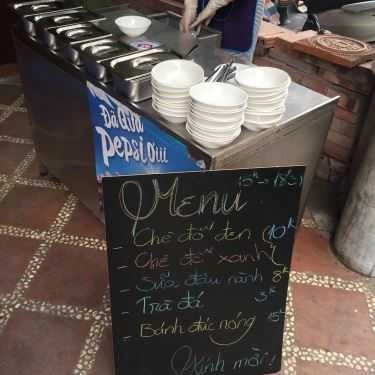 Đã Qua
Pepsi Ơi!
Menu
- Chè đỗ đen 10k
- Chè đỗ xanh
- Sữa đậu nành 8k
- Trà đá 3k
- Bánh đúc nóng 15k
Kính mời!